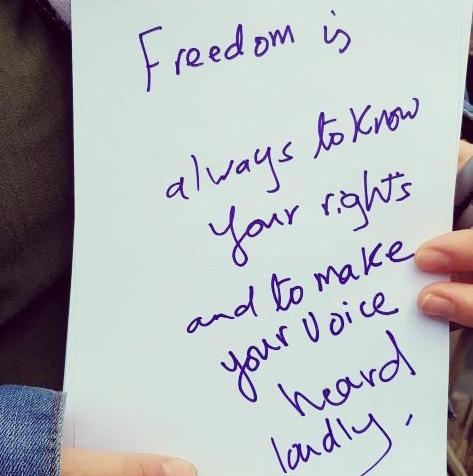 Freedom is
always to know
your rights
and to make
your voice
heard
loudly.